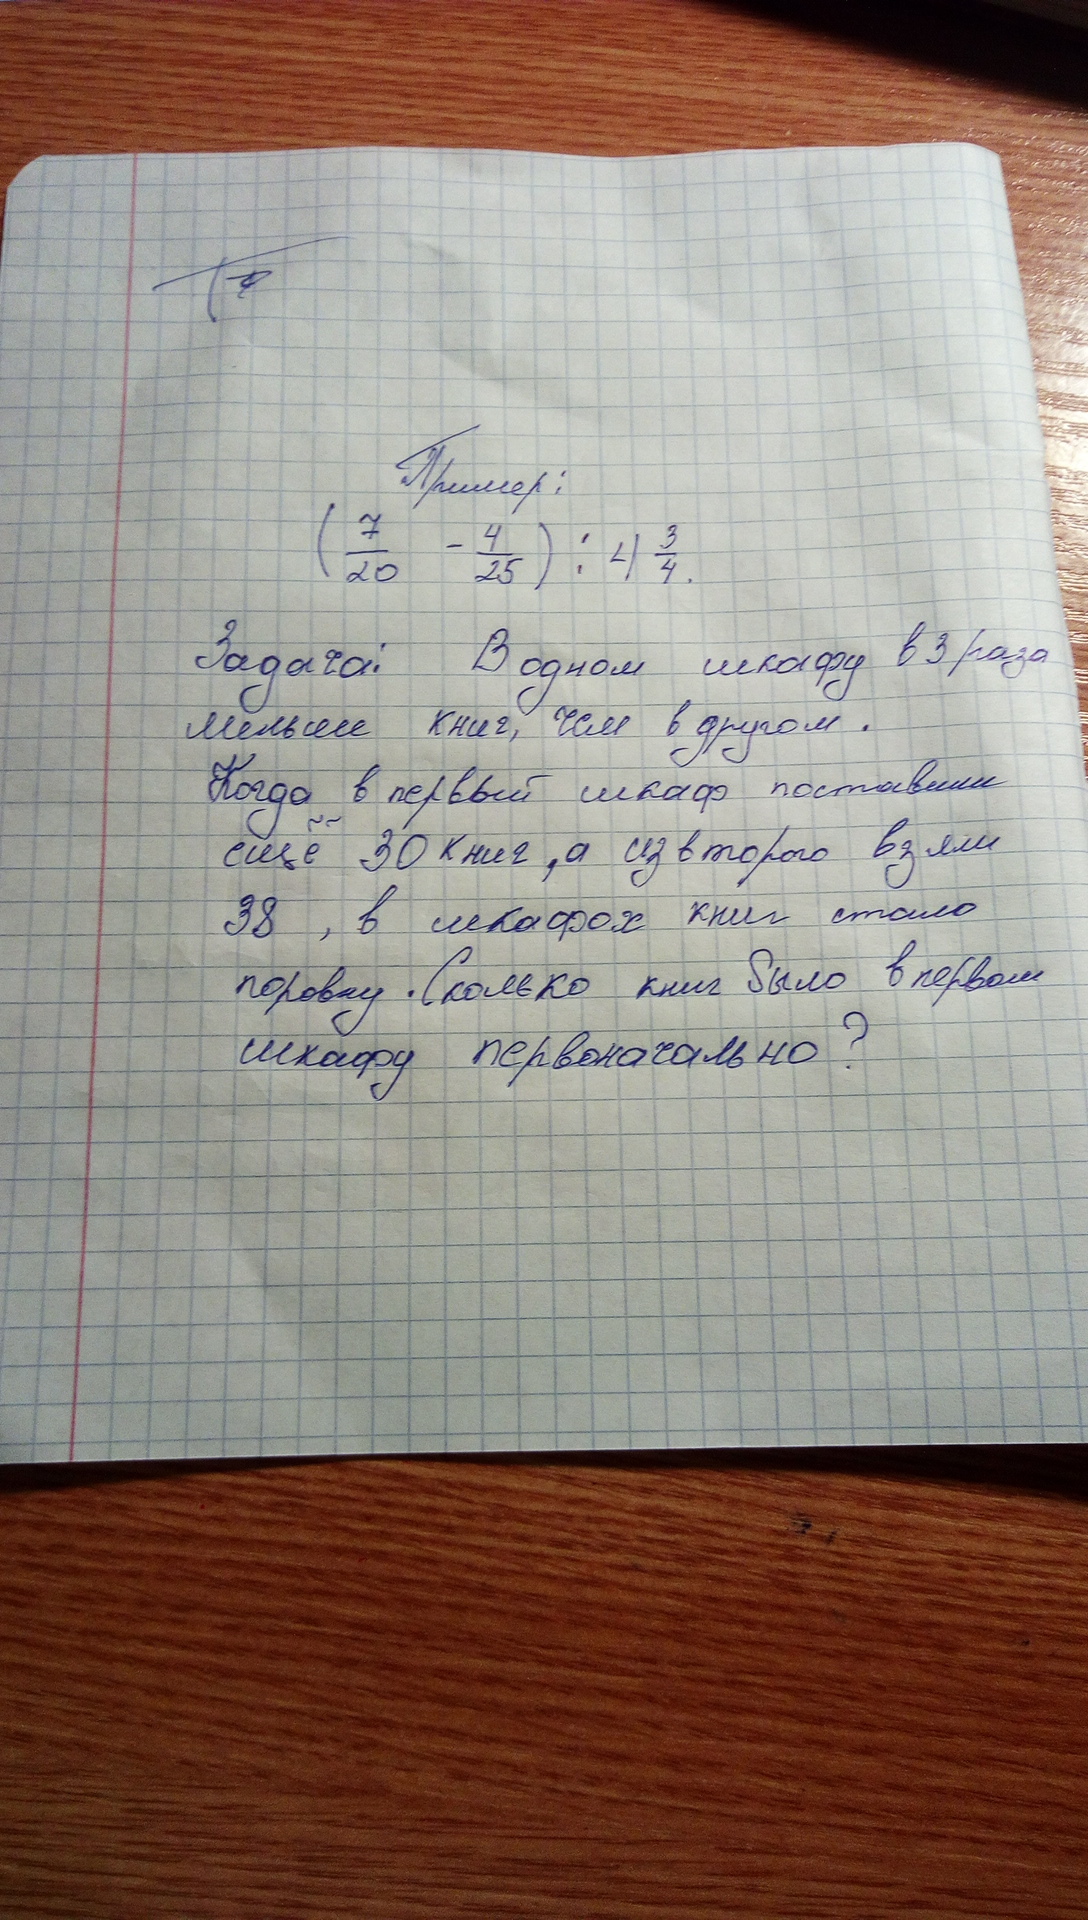 Пример:
(7/20 - 4/25) : 4 3/4.
Задача: В одном шкафу в 3 раза
меньше книг, чем в другом.
Когда в первый шкаф поставили
ещё 30 книг, а из второго взяли
38, в шкафох книг стало
поровну. Сколько книг было в первом
шкафу первоначально?